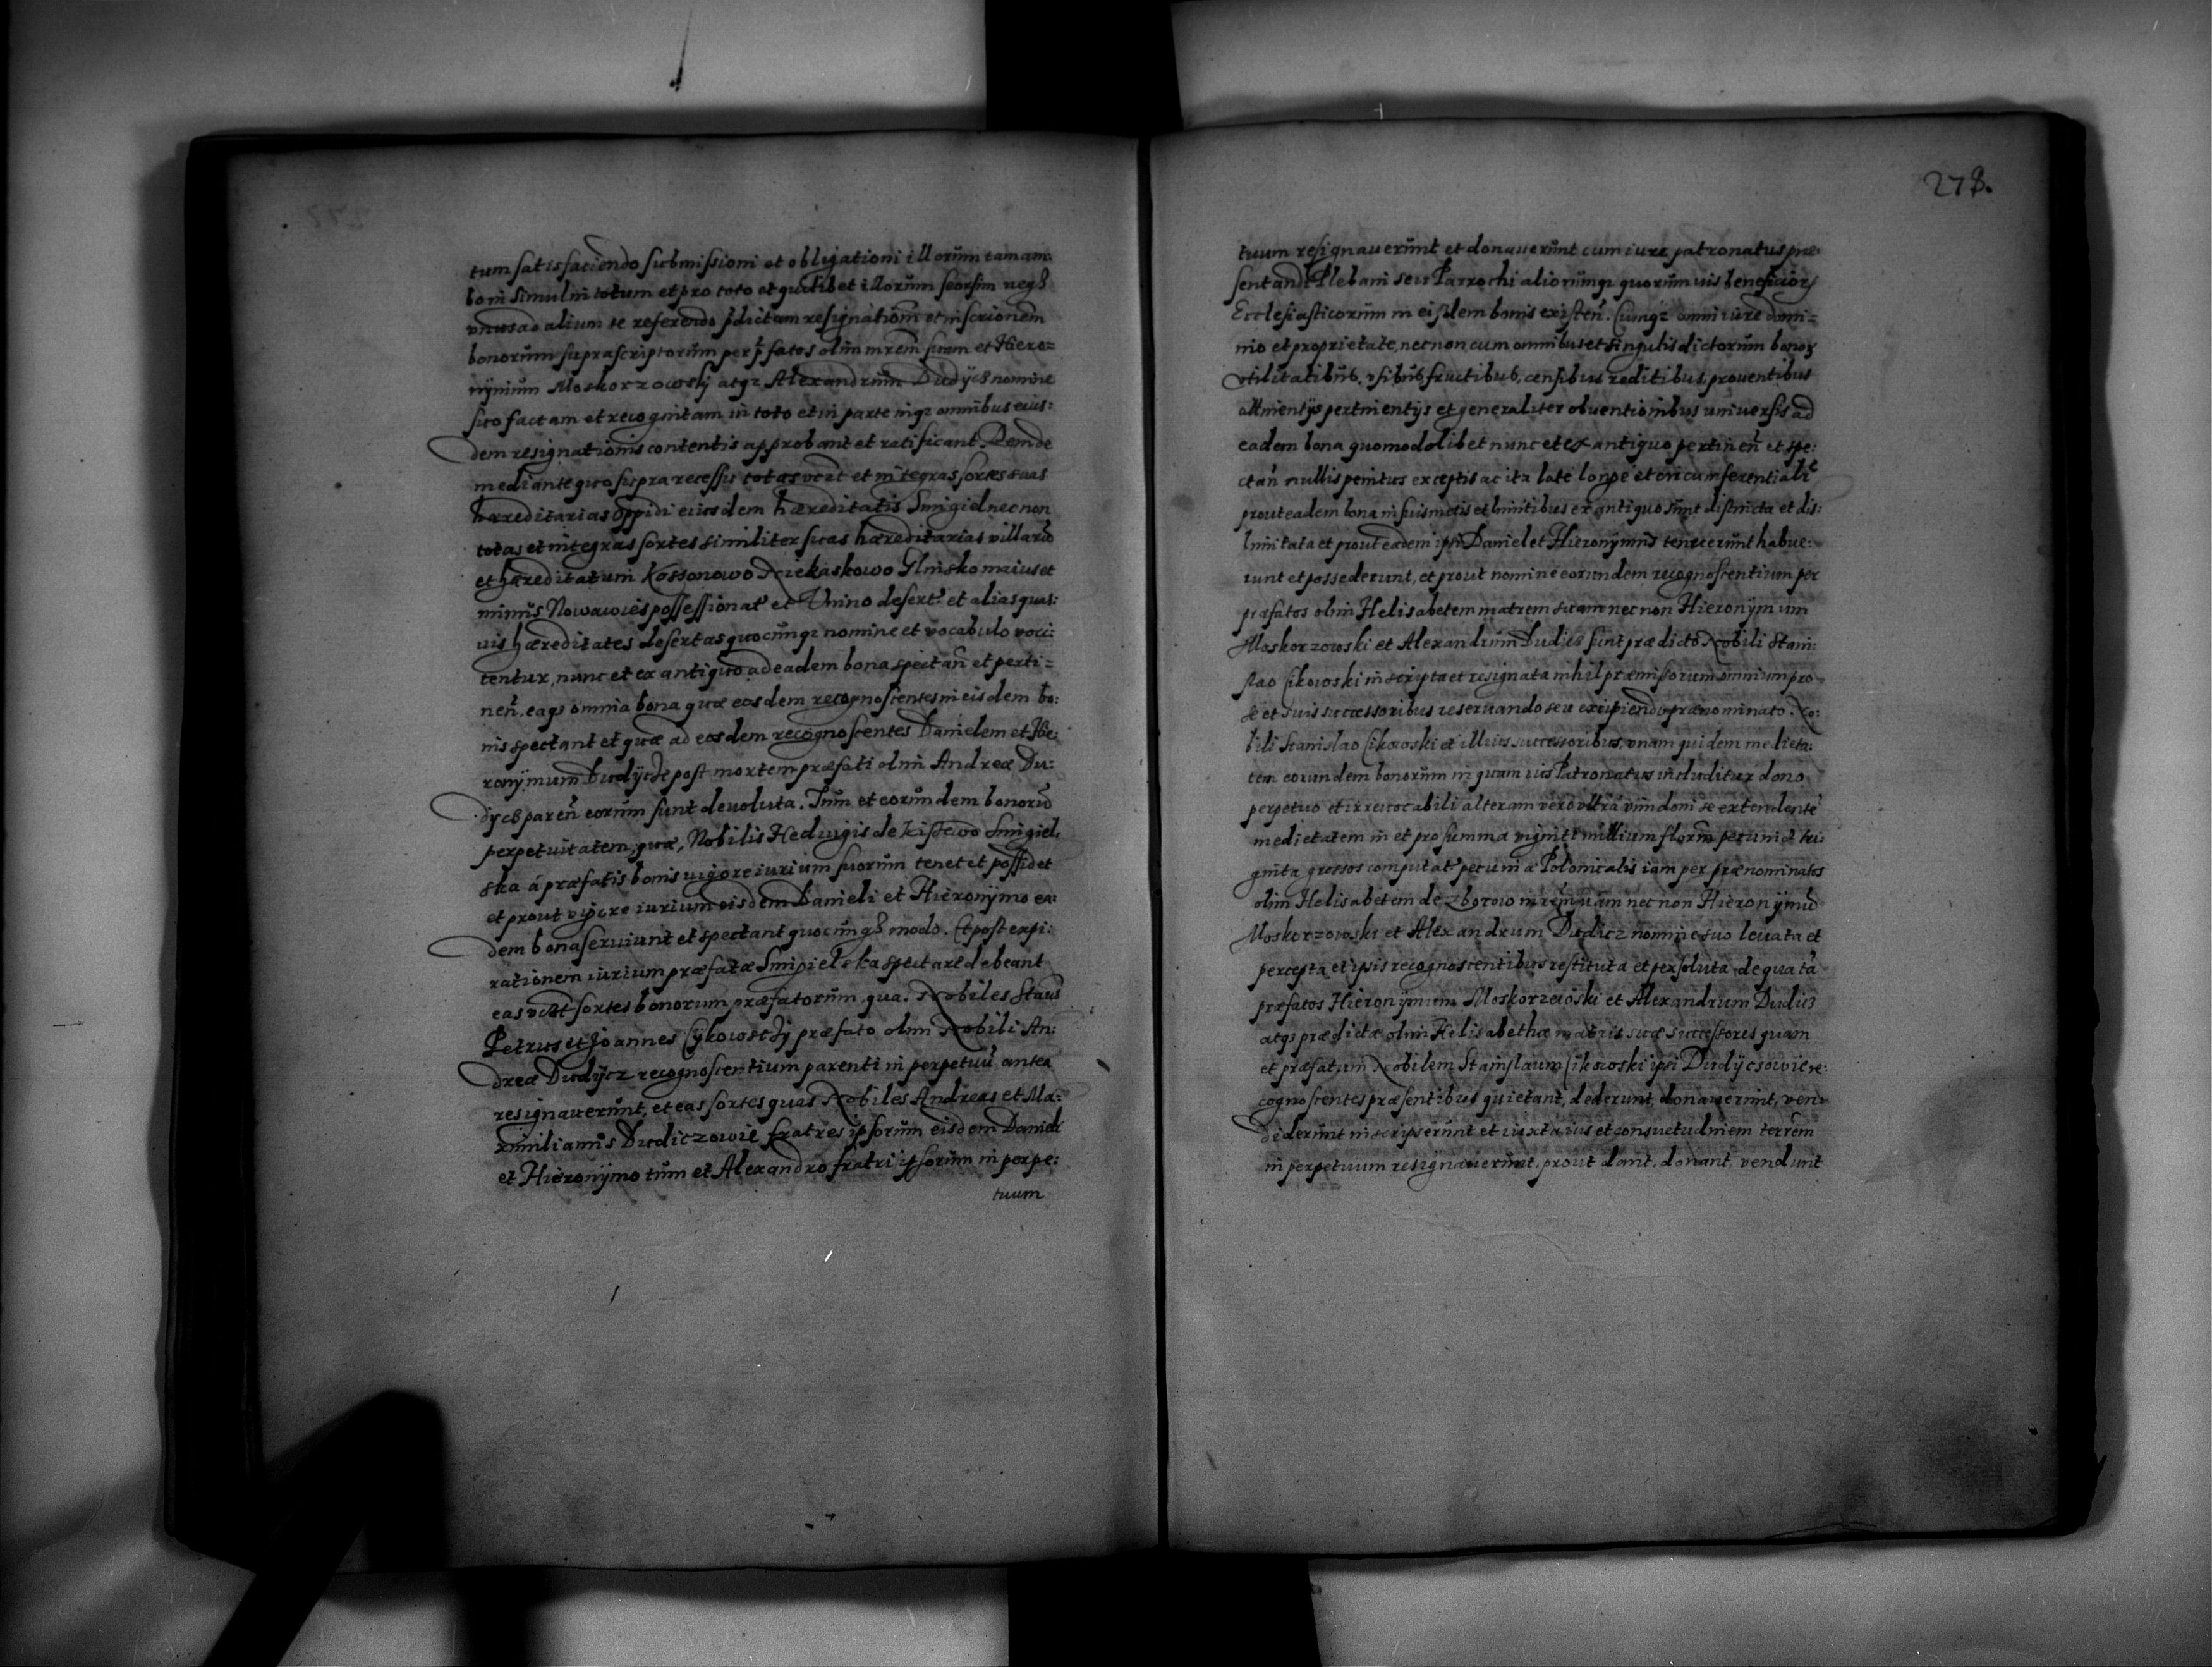 tum satisfaciendo submissioni et obligationi illorum tam am:
bo in simul in totum et pro toto et quilibet illorum seorsim neq3
vnus ad alium se referendo p̄dictam resignatiom̄ et inscrionem
bonorum suprascriptorum per p̄fatos olim mrem̄ suam et Hiero=
nÿmum Moskorzowskÿ atq3 Alexandrum Dudÿcz nomine
suo factam et recognitam in toto et in parte inq3 omnibus eius:
dem resignationis contentis approbant et ratificant. Demde
mediante quo supra recessu totas vt̄t et integras sortes suas
hæreditarias Oppidi eiusdem hæreditatis Smigiel nec non
totas et integras sortes similiter suas hæreditarias villarū
et hæreditatum Kossonowo Nieckaskowo Glinsko maius et
minus Nowawies possessionat̄ et Vnino desert̄ et alias quas:
uis hæreditates desertas quocunq3 nomine et vocabulo voci:
tentur, nunc et ex antiquo ad eadem bona spectan̄ et perti=
nen̄, eaq3 omnia bona quæ eosdem recognoscentes in eisdem bo:
nis spectant et quæ ad eosdem recognoscentes Danielem et Hie:
ronÿmum Dudÿcze post mortem præfati olim Andreæ Du:
dÿcz paren̄ eorum sunt deuoluta. Tum et eorundem bonorū
perpetuitatem, quæ, Nobilis Heduigis de Smigiel:
ska á præfatis bonis uigore iurium suorum tenet et possidet
et prout vigore iurium eisdem Danieli et Hieronÿmo ea:
dem bona seruiunt et spectant quocunq3 modo. Et post expi:
rationem iurium præfatæ Smigielska spectare debeant
eas vt̄t sortes bonorum præfatorum, quas Nobiles Stans̄
Petrus et Joannes Cÿkowskÿ præfato olim Nobili An:
dreæ Dudÿcz recognoscentium parenti in perpetuū antea
resignauerunt, et eas sortes quas Nobiles Andreas et Ma:
ximilianus Dudiczowie fratres ipsorum eisdem Danieli
et Hieronÿmo tum et Alexandro fratri ipsorum in perpe:
tuum
278.
tuum resignauerunt et donauerunt cum iure patronatus præ:
sentandi Plebani seu Parrochi aliorumq3 quorumuis beneficior̄
Ecclesiasticorum in eisdem bonis existen̄. Cumq3 omni iure domi=
nio et proprietate, nec non cum omnibus et singulis dictorum bonor̄
vtilitatibus, vsibus fructibus, censibus reditibus, prouentibus
attinentÿs pertinentÿs et generaliter obuentionibus uniuersis ad
eadem bona quomodolibet nunc et ex antiquo pertinen̄ et spe:
ctan̄ nullis penitus exceptis ac ita late longe et circumferentialr̄
prout eadem bona in suis metis et limitibus ex antiquo sunt distincta et dis:
limitata et prout eadem ipsi Daniel et Hieronÿmus tenuerunt habue:
runt et possederunt, et prout nomine eorundem recognoscentium per
præfatos olim Helisabetem matrem suam nec non Hieronÿmum
Moskorzowski et Alexandrum Dudics sunt prædicto Nobili Stani:
slao Cikowski inscripta et resignata nihil præmissorum omnium pro
se et suis successoribus reseruando seu excipiendo prænominato. No:
bili Stanislao Cikowski et illius successoribus, vnam quidem medieta:
tem eorundem bonorum in quam ius Patronatus includitur dono
perpetuo et irreuocabili alteram vero vltra vim doni se extendente
medietatem in et pro summa viginti millium floren̄ pecuniæ tri:
ginta grossos computat̄ pecuniæ Polonicalis iam per prænominatos
olim Helisabetem de Zborow mrem̄ suam nec non Hieronÿmū
Moskorzowski et Alexandrum Dudicz nomine suo leuata et
percepta et ipsis recognoscentibus restituta et persoluta de qua tā
præfatos Hieronÿmum Moskorzewski et Alexandrum Dudicz
atq3 prædictæ olim Helisabethæ matris suæ successores quam
et præfatum Nobilem Stanislaum Cikowski ipsi Dudÿcsowie re:
cognoscentes præsentibus quietant, dederunt, donauerunt, ven:
diderunt inscripserunt et iuxta ius et consuetudinem terrēm
in perpetuum resignauerunt, prout dant, donant, vendunt